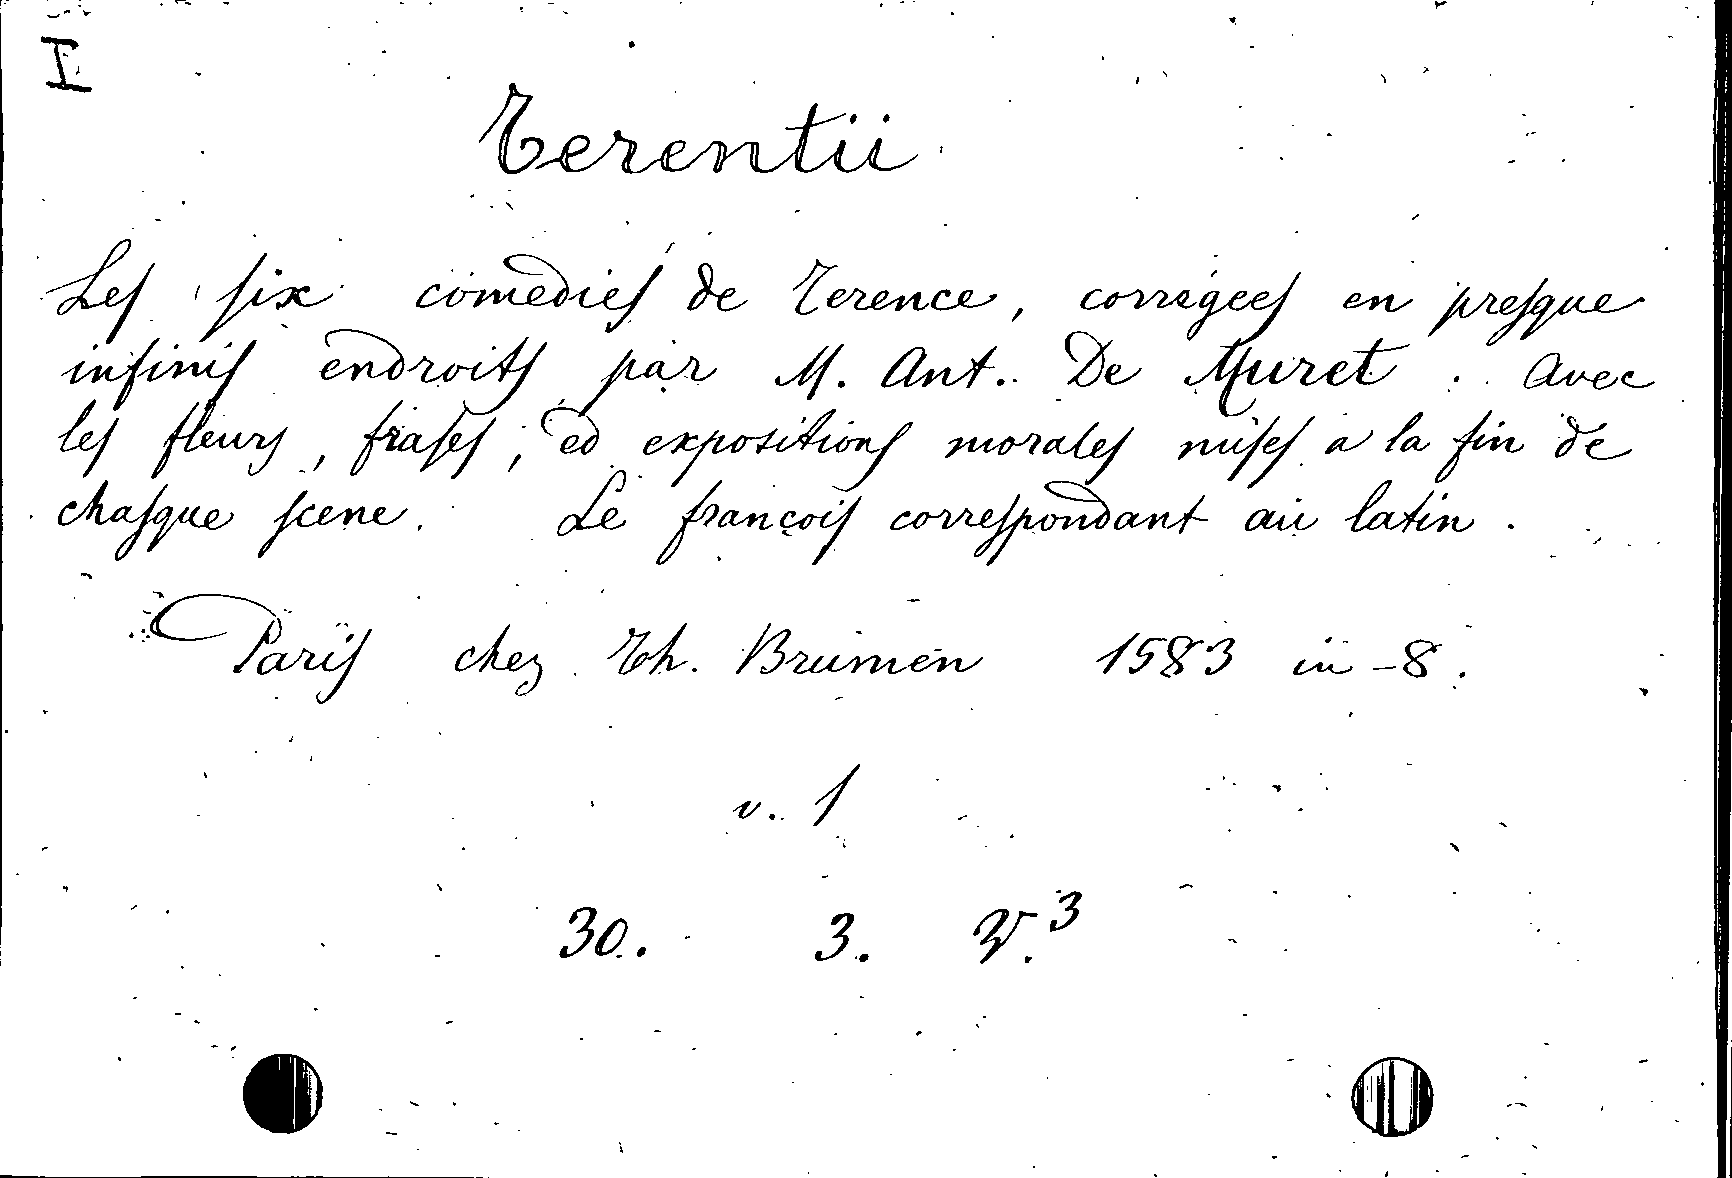 I
Terentii
Les six comedies de Terence, corrigees en presque
infinis endroits par M. Ant. De Muret. avec
les fleurs, frases, ed expositions morales mises a la fin de
chasque scene. Le françois correspondant au latin.
Paris chez Th. Brumen 1583 in-8.
v. 1
30. 3. V.3